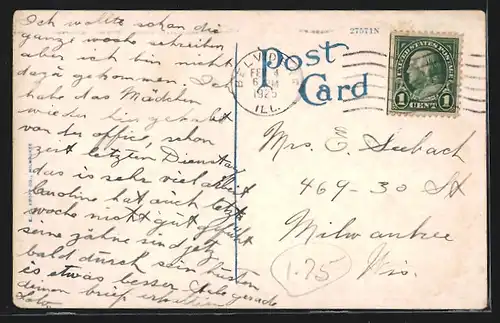 Ich wollte schon die
ganze woche schreiben
aber ich bin nicht
dazu gekommen. Ich
habe das Mädchen
wieder hier gehabt
von der office, schon
seit letzten Dienstag
das is sehr viel arbeit
Caroline hat auch letzte
woche nicht gut gefühlt
seine zähne sind jetz
bald durch sein husten
is etwas besser habe gerade
deinen brief erhalten
27571N
Post
Card
BELVIDERE
FEB 4
6 PM
1925
ILL.
UNITED STATES POSTAGE
FRANKLIN
1 CENT 1
Mrs. E. Seebach
469-30 St
Milwaukee
Wis.
1.75